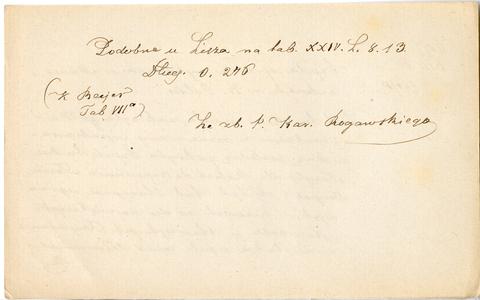 Podobne u Lisza na tab. XXIV. L. 8. 13.
Dług. 0. 276
(K Beyer
Tab VIIa)
Ze zb. P. Kar. Rogawskiego